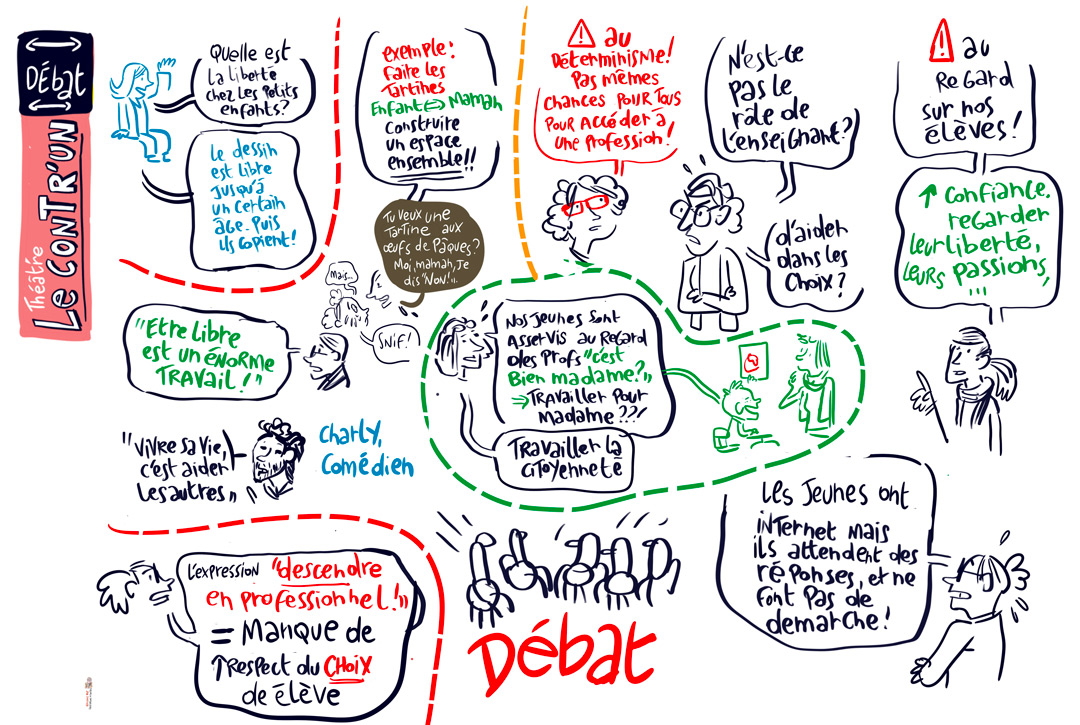 DÉbat
Théâtre
Le CONTR'UN
Quelle est
la liberté
chez les petits
enfants?
Le dessin
est libre
jusqu'à
un certain
âge. Puis
ils copient!
exemple:
faire les
tartines
Enfant ⇔ Maman
Construire
un espace
ensemble!!
Tu veux une
tartine aux
œufs de Pâques?
Moi, maman, Je
dis "Non!"..
Mais...
Snif!
⚠ au
Déterminisme!
Pas mêmes
chances pour tous
pour accéder à
une profession!
N'est-ce
pas le
rôle de
l'enseignant?
d'aider
dans les
choix?
⚠ au
Regard
sur nos
élèves!
↑ Confiance.
regarder
leur liberté,
leurs passions,
!!!
"Etre libre
est un énorme
travail!"
"Vivre sa vie,
c'est aider
les autres"
Charly,
Comédien
Nos jeunes sont
asservis au regard
des profs "c'est
bien madame?"
⇒ Travailler pour
madame???!
Travailler la
citoyenneté
Les jeunes ont
internet mais
ils attendent des
réponses, et ne
font pas de
demarche!
L'expression "descendre
en professionnel!"
= Manque de
↑ respect du CHOIX
de élève
Débat